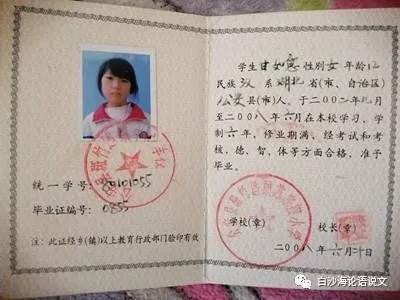 统一学号:20101055
毕业证编号:0855
注:此证经乡(镇)以上教育行政部门验印有效
学生甘如意性别女 年龄12
民族汉 系湖北省(市、自治区)
公安县(市)人。于二00二年九月
至二00八年六月在本校学习,学
制六年,修业期满,经考试和考
核,德、智、体等方面合格,准予
毕业。
学校(章) 校长(章)
二00八年六月二十日
白沙海论语说文